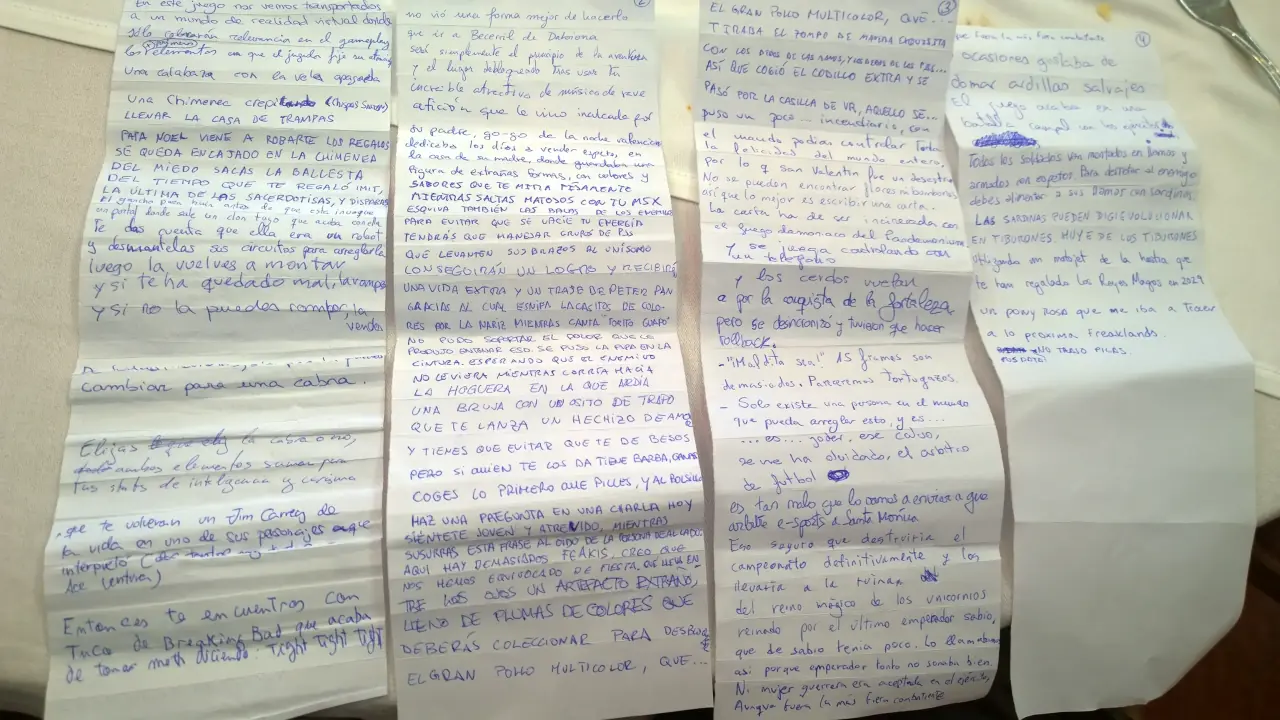 En este juego nos vemos transportados
a un mundo de realidad virtual donde
sólo cobrarán relevancia en el gameplay
los elementos con que el jugador fije su
Una calabaza con la vela apagada
Una chimenea (Chispas Suaves)
LLENAR LA CASA DE TRAMPAS
PAPA NOEL VIENE A ROBARTE LOS REGALOS
SE QUEDA ENCAJADO EN LA CHIMENEA
DEL MIEDO SACAS LA BALLESTA
DEL TIEMPO QUE TE REGALÓ IMIT,
LA ÚLTIMA DE LAS SACERDOTISAS, Y DISPARAS
El gancho para huir antes de que esta invoque
un portal donde sale un clon tuyo y acaba contigo
Te das cuenta que ella era un robot
y desmantelas sus circuitos para arreglarla
luego la vuelves a montar
y si te ha quedado mal, la rompes
y si no la puedes romper, la
vendes
cambiar para una cabra.
Elijas la cabra o no,
ambos elementos suman para
tus stats de inteligencia y carisma
que te volverán un Jim Carrey de
la vida en uno de sus personajes que
interpretó
Ace Ventura)
Entonces te encuentras con
Tuco de Breaking Bad que acaba
de tomar meth diciendo: Tight Tight Tight
2
no vió una forma mejor de hacerlo
que ir a Becerril de
Será simplemente el principio de la aventura
y el lugar desbloqueado tras usar tu
increíble atractivo de músico de
afición que le vino inculcado por
su padre, go-go de la noche valenciana
dedicaba los días a vender en
la casa de su madre, donde guardaban una
figura de extrañas formas, con colores y
SABORES QUE TE MIRA FIJAMENTE
MIENTRAS SALTAS MATOJOS CON TU MSX
ESQUIVA TAMBIÉN LAS BALAS DE LOS ENEMIGOS
PARA EVITAR QUE SE VACIE TU ENERGÍA
TENDRÁS QUE MANEJAR GRUPOS DE
QUE LEVANTEN SUS BRAZOS AL UNÍSONO
CONSEGUIRÁN UN LOGRO Y RECIBIRÁ
UNA VIDA EXTRA Y UN TRAJE DE PETER PAN
GRACIAS AL CUAL ESNIFA LACASITOS DE COLO-
RES POR LA NARIZ MIENTRAS CANTA "TORITO GUAPO"
NO PUDO SOPORTAR EL DOLOR QUE LE
PRODUJO ENTONAR ESO. SE PUSO LA EN LA
CINTURA ESPERANDO QUE EL ENEMIGO
NO LE VIERA MIENTRAS CORRÍA HACIA
LA HOGUERA EN LA QUE ARDÍA
UNA BRUJA CON UN OSITO DE TRAPO
QUE TE LANZA UN HECHIZO DE AMOR
Y TIENES QUE EVITAR QUE TE DE BESOS
PERO SI QUIEN TE LOS DA TIENE BARBA, GANAS
COGES LO PRIMERO QUE PILLES, Y AL BOLSILLO
HAZ UNA PREGUNTA EN UNA CHARLA HOY
SIÉNTETE JOVEN Y ATREVIDO, MIENTRAS
SUSURRAS ESTA FRASE AL OIDO DE LA PERSONA DE AL LADO:
AQUI HAY DEMASIADOS FEAKIS, CREO QUE
NOS HEMOS EQUIVOCADO DE FIESTA, QUE LLEVA EN-
TRE LOS OJOS UN ARTEFACTO EXTRAÑO,
LLENO DE PLUMAS DE COLORES QUE
DEBERÁS COLECCIONAR PARA
EL GRAN POLLO MULTICOLOR, QUE...
3
EL GRAN POLLO MULTICOLOR, QUE...
TIRABA EL POMPO DE MANERA EXQUISITA
CON LOS DEDOS DE LAS MANOS, Y LOS DEDOS DE LOS PIES...
ASÍ QUE COGIÓ EL CODILLO EXTRA Y SE
PASÓ POR LA CASILLA DE VR, AQUELLO SE...
puso un poco... incendiario, con
el mando podías controlar toda
la felicidad del mundo entero,
por lo q san Valentín fue un desastre
No se pueden encontrar flores ni bombones
así que lo mejor es escribir una carta.
La carta ha de ser incinerada con
el fuego demoníaco del Pandemonium
Y se juega controlando con
un teléfono
y los cerdos vuelan
a por la conquista de la fortaleza
pero se desincronizó y tuvieron que hacer
rollback.
- "Maldita sea!" 15 frames son
demasiados. Pareceremos tortugazos.
- Solo existe una persona en el mundo
que pueda arreglar esto, y es...
... es... joder, ese calvo,
se me ha olvidado, el arbitro
de futbol
es tan malo que lo vamos a enviar a que
arbitre e-sports a Santa Monica
Eso seguro que destruiría el
campeonato definitivamente y los
llevaría a la ruina
del reino mágico de los unicornios
reinado por el último emperador sabio,
que de sabio tenía poco. Lo llamaban
así porque emperador tonto no sonaba bien.
Ni mujer guerrera era aceptada en el ejército,
Aunque fuera la más fiera combatiente
4
que fuera la más fiera combatiente
ocasiones gustaba de
domar ardillas salvajes
El juego acaba en una
batalla campal con los ejércitos
Todos los soldados van montados en llamas y
armados con espetos. Para derrotar al enemigo
debes alimentar a sus llamas con sardinas.
LAS SARDINAS PUEDEN DIGIEVOLUCIONAR
EN TIBURONES. HUYE DE LOS TIBURONES
utilizando un motojet de la hostia que
te han regalado los Reyes Magos en 2029
un pony Rosa que me iba a Traer
a la próxima Freaklands.
NO TRAJO PILAS.